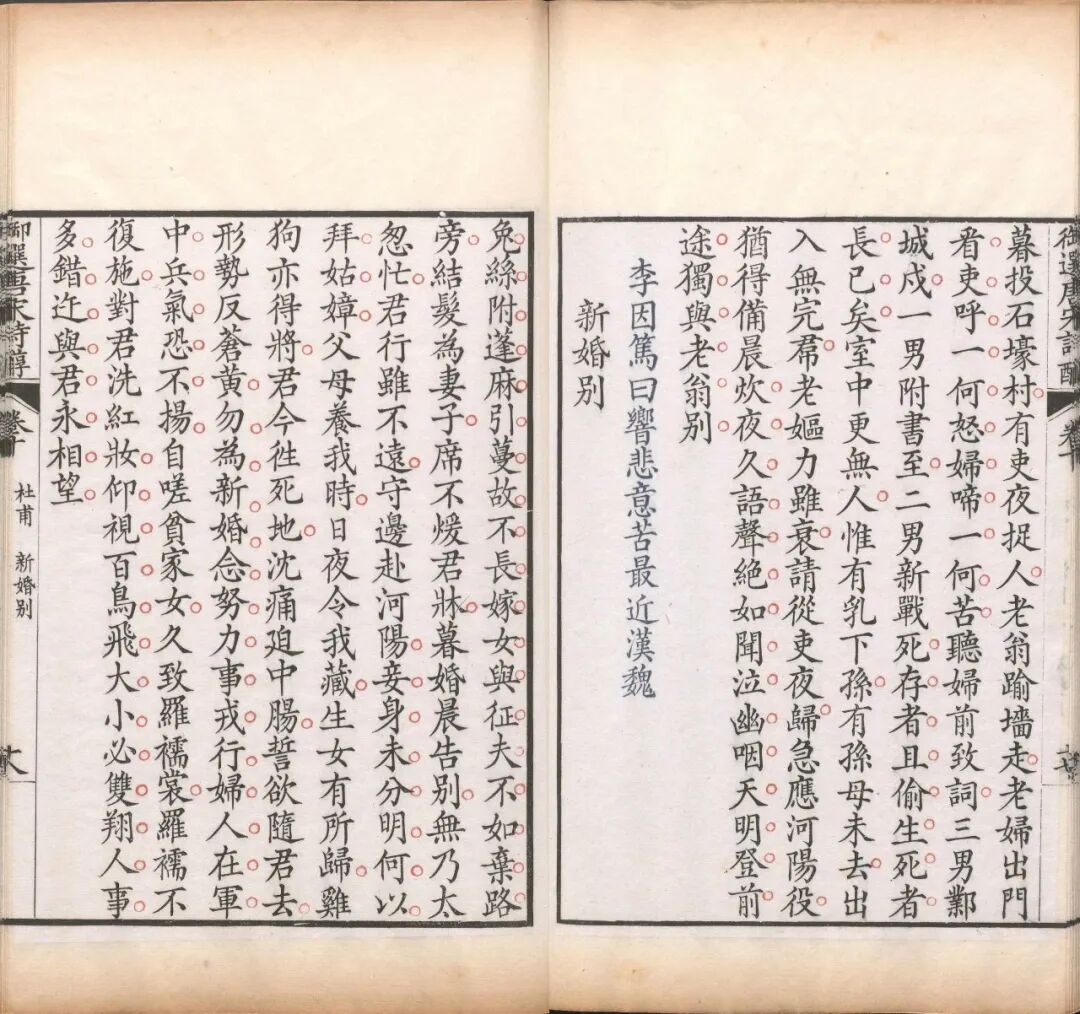 御選唐宋詩醇 卷十
暮投石壕村有吏夜捉人老翁踰墻走老婦出門
看吏呼一何怒婦啼一何苦聽婦前致詞三男鄴
城戍一男附書至二男新戰死存者且偷生死者
長已矣室中更無人惟有乳下孫有孫母未去出
入無完帬老嫗力雖衰請從吏夜歸急應河陽役
猶得備晨炊夜久語聲絕如聞泣幽咽天明登前
途獨與老翁別
李因篤曰響悲意苦最近漢魏
新婚別
兔絲附蓬麻引蔓故不長嫁女與征夫不如棄路
旁結髮為妻子席不煖君牀暮婚晨告別無乃太
怱忙君行雖不遠守邊赴河陽妾身未分明何以
拜姑嫜父母養我時日夜令我藏生女有所歸雞
狗亦得將君今徃死地沈痛迫中腸誓欲隨君去
形勢反蒼黃勿為新婚念努力事戎行婦人在軍
中兵氣恐不揚自嗟貧家女久致羅襦裳羅襦不
復施對君洗紅妝仰視百鳥飛大小必雙翔人事
多錯迕與君永相望
御選唐宋詩醇 卷十 杜甫 新婚別